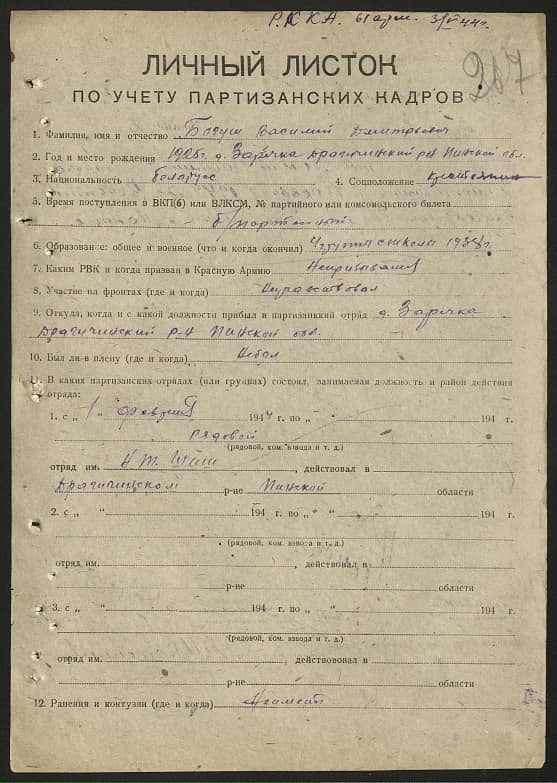 Р.К К А. 61 арм.
267
ЛИЧНЫЙ ЛИСТОК
ПО УЧЕТУ ПАРТИЗАНСКИХ КАДРОВ
1. Фамилия, имя и отчество Василий Дмитрьевич
2. Год и место рождения 1925г. д. Заречка Драгичинский р-он Пинской обл.
3. Национальность беларусс 4. Соцположение крестьянин
5. Время поступления в ВКП(б) или ВЛКСМ, № партийного или комсомольского билета
б/партейный
6. Образование: общее и военное (что и когда окончил) школы
7. Каким РВК и когда призван в Красную Армию Непризывался
8. Участие на фронтах (где и когда) Неучаствовал
9. Откуда, когда и с какой должности прибыл в партизанский отряд д. Заречка
Драгичинский р-н Пинской обл.
10. Был ли в плену (где и когда) Небыл
11. В каких партизанских отрядах (или группах) состоял, занимаемая должность и район действия
отряда:
1. с „ 1 “ февраля 1944 г. по „ “ 194 г.
рядовой
(рядовой, ком. взвода и т. д.)
отряд им. , действовал в
Драгичинском р-не Пинской области
2. с „ “ 194 г. по „ “ 194 г.
(рядовой, ком. взвода и т. д.)
отряд им. , действовал в
р-не области
3. с „ “ 194 г. по „ “ 194 г.
(рядовой, ком. взвода и т. д.)
отряд им. , действововал в
р-не области
12. Ранения и контузии (где и когда) Неимеет